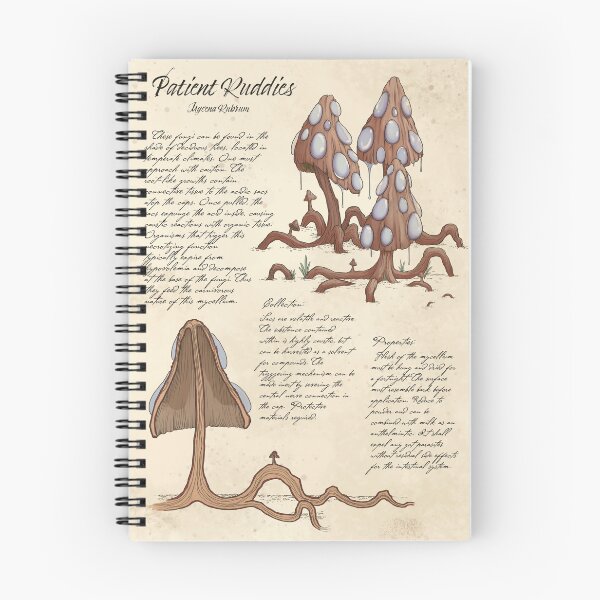 Patient Ruddies
Mycena Rubrum
These fungi can be found in the
shade of deciduous trees, located in
temperate climates. One must
approach with caution. The
root-like growths contain
connective tissue to the acidic sacs
atop the caps. Once pulled, the
sacs expunge the acid inside, causing
caustic reactions with organic tissue.
Organisms that trigger this
necrotizing function
typically expire from
hypovolemia and decompose
at the base of the fungi. Thus
they feed the carnivorous
nature of this mycellum.
Collection
Sacs are volatile and reactive
The substance contained
within is highly caustic, but
can be harvested as a solvent
for compounds. The
triggering mechanism can be
made inert by severing the
central nerve connection in
the cap. Protective
materials required.
Properties
Flesh of the mycellum
must be hung and dried for
a fortnight. The surface
must resemble bark before
application. Reduce to
powder and can be
combined with milk as an
anthelmintic. It shall
expel any gut parasites
without residual side effects
for the intestinal system.